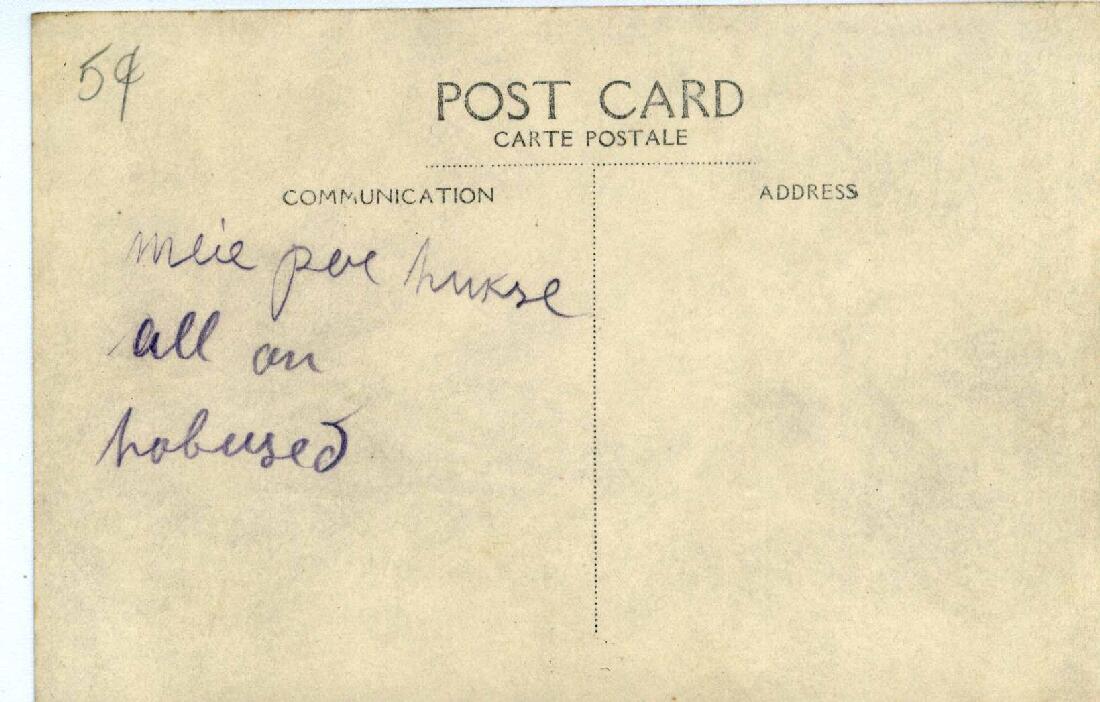 5¢
POST CARD
CARTE POSTALE
COMMUNICATION
ADDRESS
meie poe hukse
all on
hobused